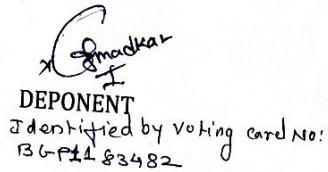 x Gmadkar
I
DEPONENT
Identified by Voting card No:
BGP11 83482